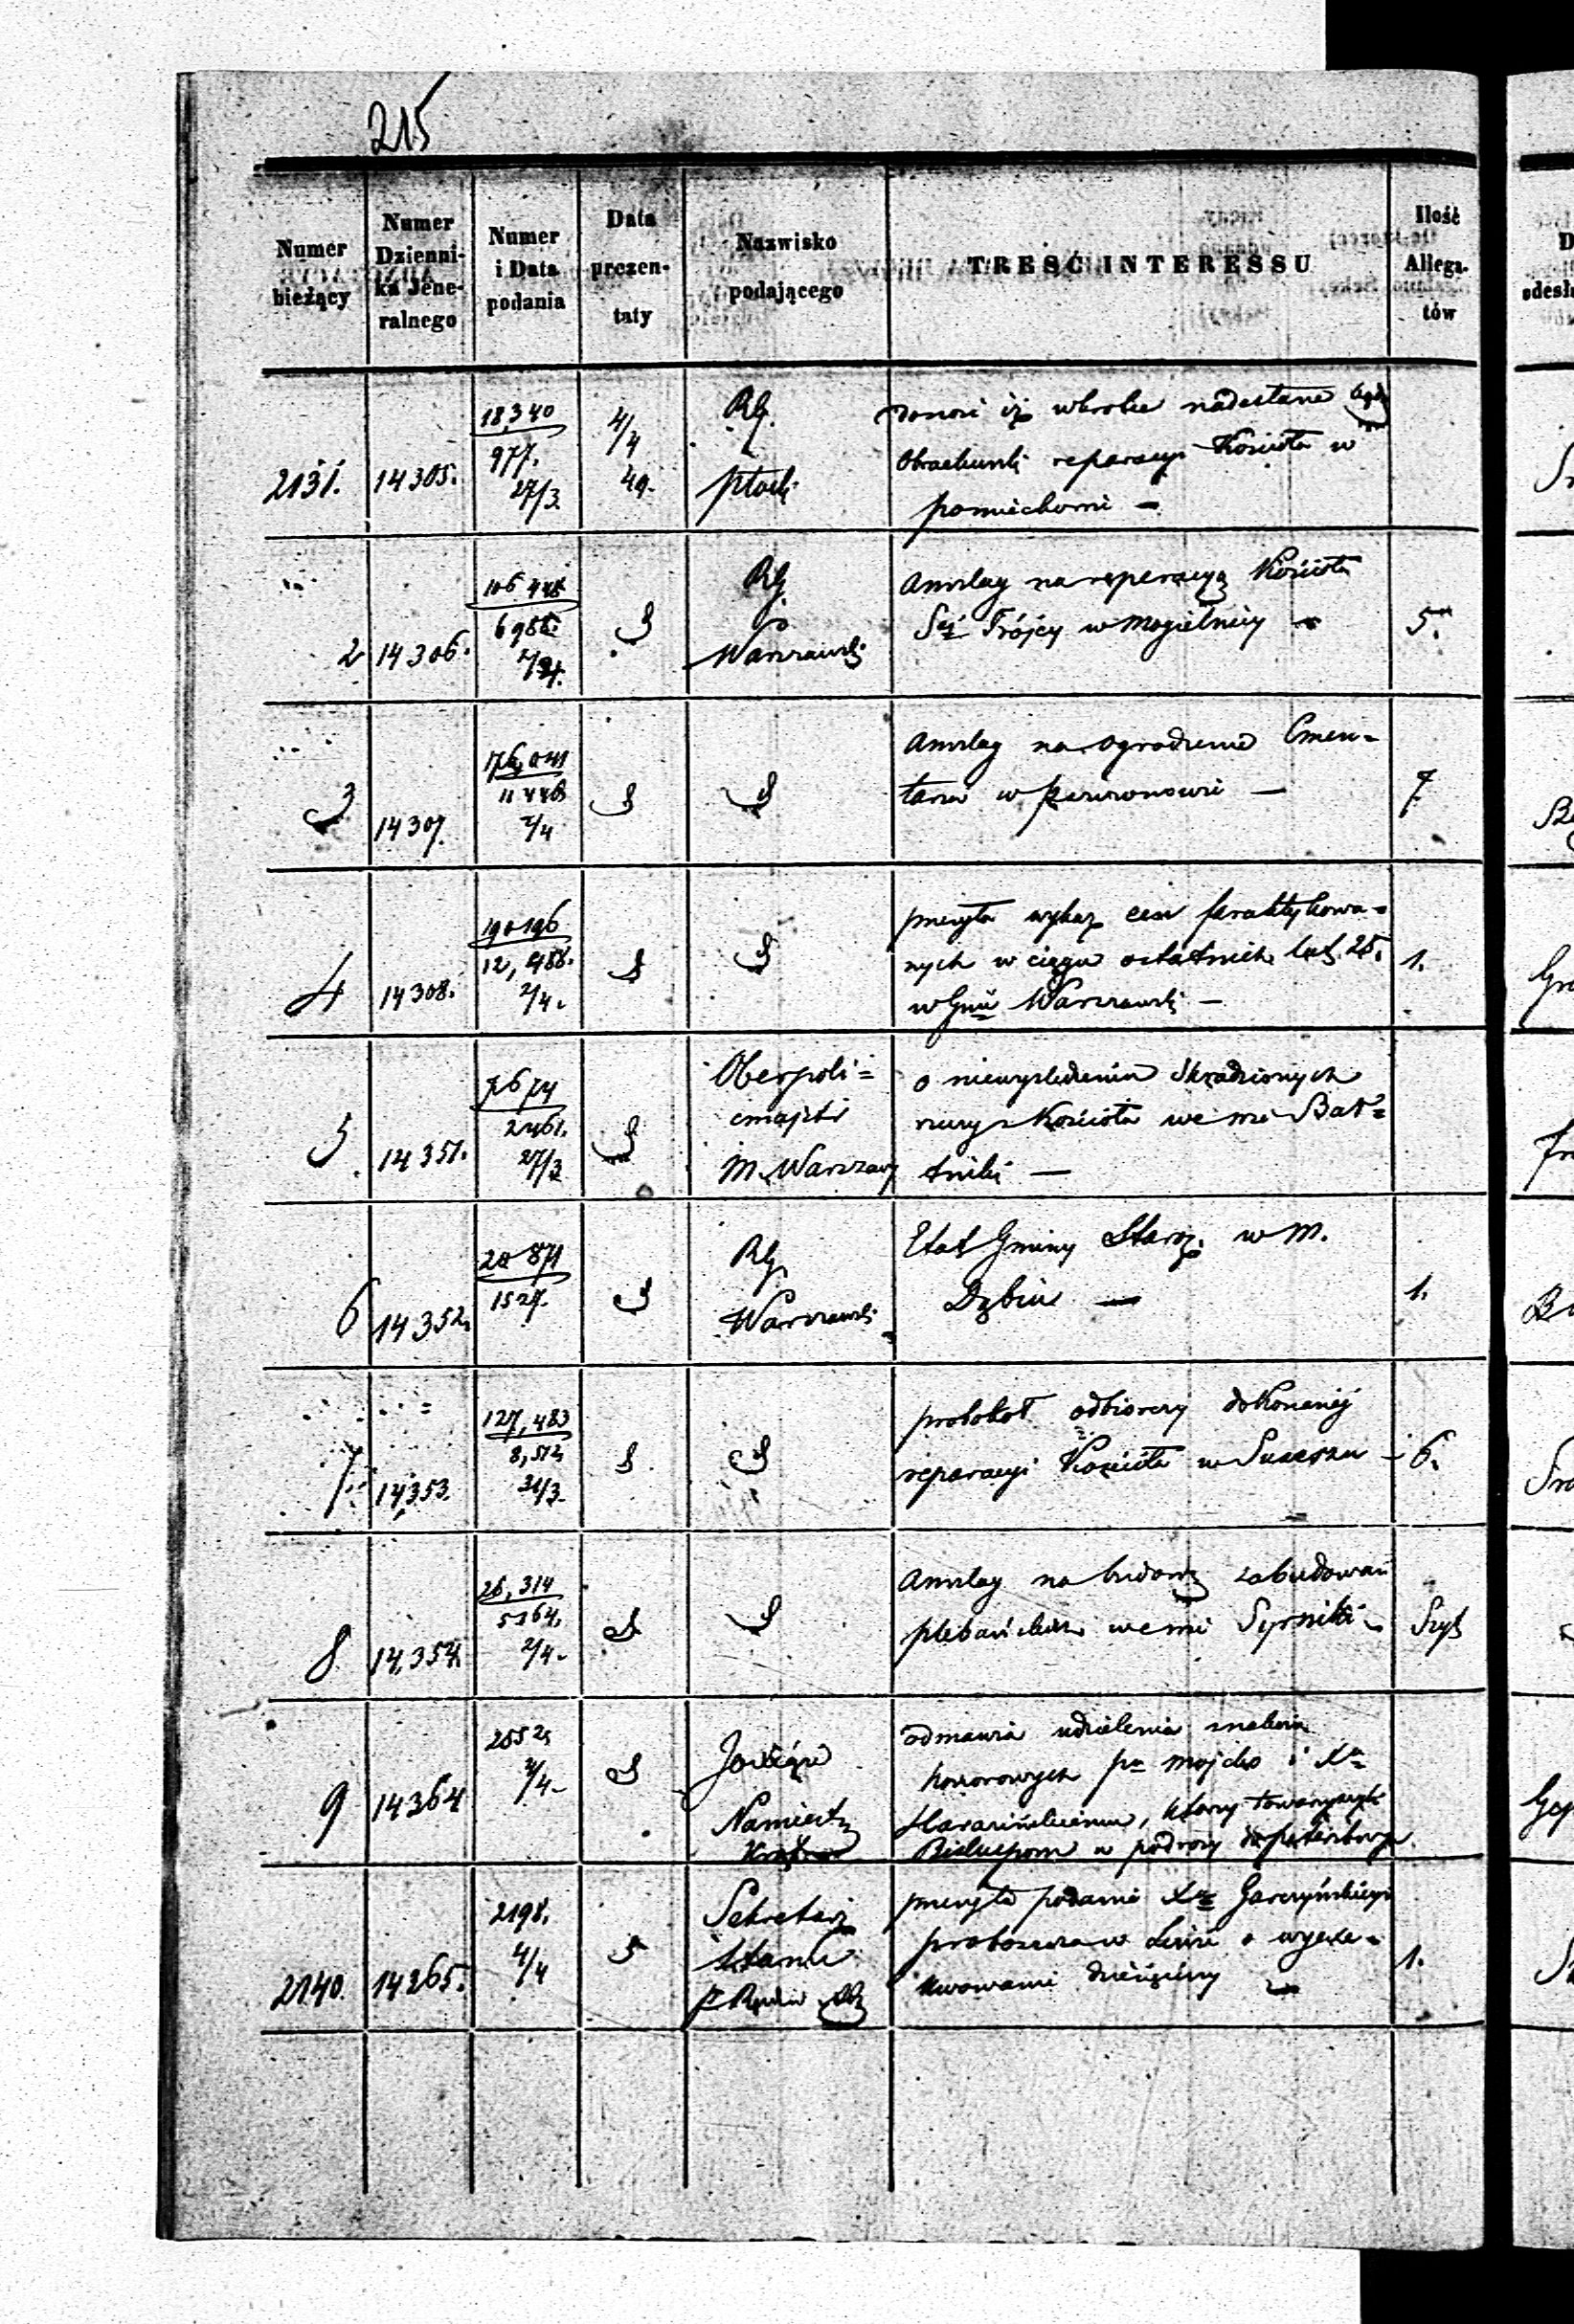 215
Numer bieżący
Numer Dziennika Jeneralnego
Numer i Data podania
Data prezentaty
Nazwisko podającego
TREŚĆ INTERESSU
Ilość Allegatów
2131. 14305. 18,340 977. 27/3. 4/4 49. RG. Płocki
donosi iż wkrotce nadesłane będą
Obrachunki reparacyi Kościoła w
pomiechowie —
2 14306. 106 448 6988. 2/4. RG Warszawski 5.
Anszlag na reperacyą Kościoła
Sej Trójcy w Mogielnicy
3 14307. 176,041 11446 2/4 7
Anszlag na ogrodzenie Cmen=
tarza w
4 14308. 190196 12,488. 2/4. 1.
przesyła wykaz cen praktykowa=
nych w ciągu ostatnich lat 25.
w Gnii Warszawski —
5 14351. 7674 2461. 27/3 Oberpoli=
cmajster
M. Warszawy
o niewyśledzeniu skradzionych
rzeczy z Kościoła we wsi Bart=
niki —
6 14352. 20871 1527. RG Warszawski 1.
Etat Gminy Starz. w M.
Dąbiu —
7 14353. 127,483 8,512 31/3 6.
protokół odbiorczy dokonanéj
reparacyi Kościoła w
8 14,354. 26,314 5164. 2/4. Szyt
Anszlag na budowę zabudowań
plebańskich we wsi Syrniki
9 14364 2552 2/4. Jo Książe
Namiestn
odmawia udzielenia znaków
honorowych pu Mojcho i Xu
któremu towarzyszyli
Biskupom w podroży do petersburga
2140. 14265. 2198. 4/4 Sekretarz
Stanu
przesyła podanie Xa Garczyńskiego
proboszcza w o wyexe=
kwowanie dziesięciny 1.